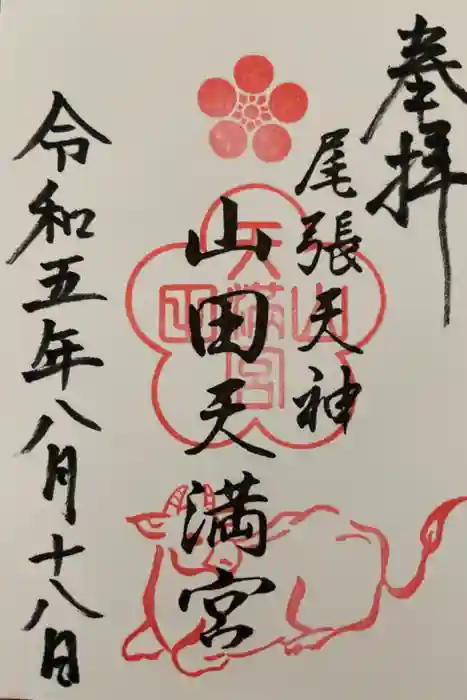 奉拝
尾張天神
山田天満宮
山田
天満宮
令和五年八月十八日